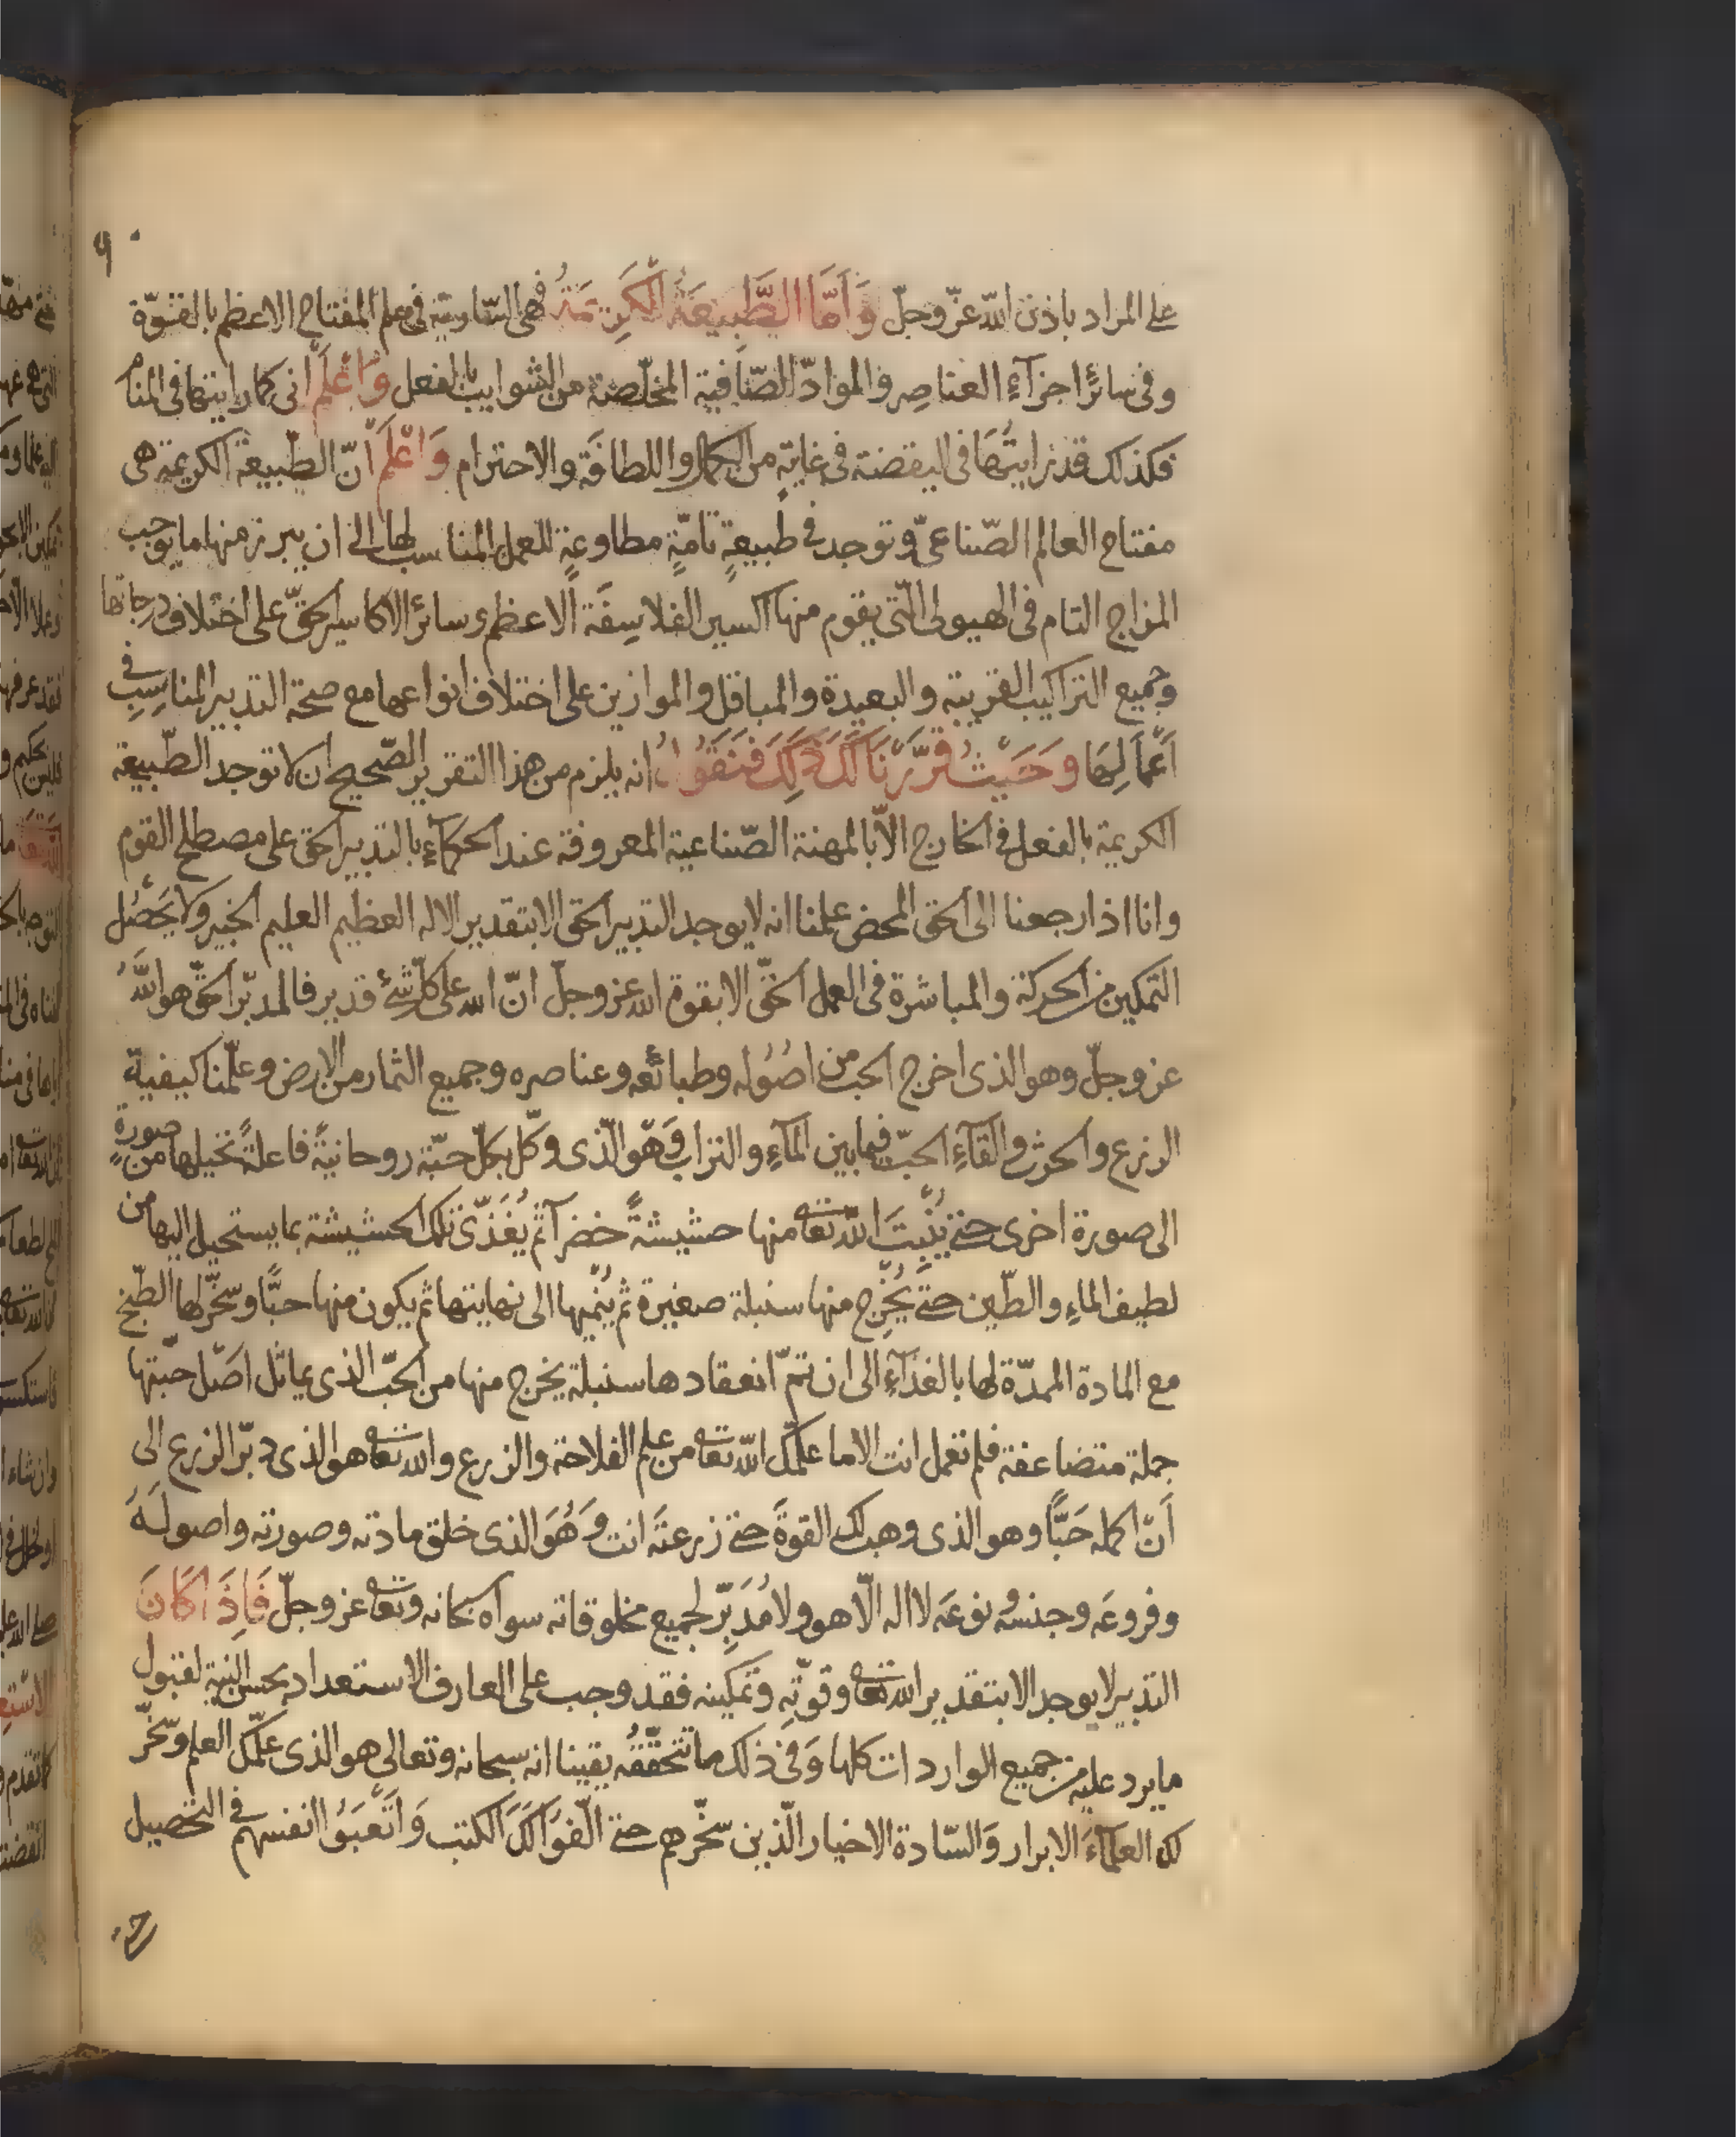 ٩
على المراد باذن الله عزّ وجلّ وَأَمَّا الطَّبِيعَةُ الْكَرِيمَةُ فهى السّارية فى علم المفتاح الاعظم بالقوّة
وفى سائر اجزآء العناصر والموادّ الصّافية المخلّصة من الشوايب بالفعل وَاعْلَم انى كما رايتها فى المنام
فكذلك قد رايتُهَا فى اليقضة فى غايةٍ من الكمال واللطافَة والاحترام وَاعْلَم أنّ الطّبيعة الكريمة هى
مفتاح العالم الصّناعىّ وتوجد فى طبيعةٍ تامّةٍ مطاوعةٍ للعمل المناسب لها الى ان يبرز منها ما يوجب
المزاج التام فى الهيولى الّتى يقوم منها اكسير الفلاسِفَة الاعظم وسائر الاكاسير الحقّ على اختلاف درجاتها
وجميع التراكيب القريبة والبعيدة والمباقل والموازين على اختلاف انواعها مع صحة التدبير المناسِبِ فى
أعْمالِهَا وَحَيْثُ قَرَّرْنَا لَكَ ذَلِكَ فَنَقُولُ انه يلزم من هذا التقرير الصّحيح ان لا توجد الطّبيعة
الكريمة بالفعل فى الخارج الاّ بالمهنة الصّناعية المعروفة عند الحكمآءِ بالتدبير الحق على مصطلح القوم
وانا اذا رجعنا الى الحق المحض علمنا انه لا يوجد التدبير الحق الا بتقدير الاله العظيم العليم الخبير ولا يَحْصُل
التمكين من الحركة والمباشرة فى العمل الحقّ الا بقوة الله عز وجلّ انّ الله على كلّ شئ قدير فالمدبّر الحقّ هو اللّهُ
عز وجلّ وهو الذى اخرج الحب من اصُوله وطبائعه وعناصره وجميع الثمار من الارض وعلّمنا كيفيّة
الزرع والحرث والقآءِ الحبّ فيما بين المآءِ والتراب وَهُو الّذى وكّل بكلّ حبّة روحانيّةً فاعلةً تحيلها من صورةٍ
الى صورة اخرى حتى يُنْبِتَ اللّه تعالى منها حشيشةً خضرآ ثم يُغَذّى تلك الحشيشة بما يستحيل اليها من
لطيف الماءِ والطّين حتى يُخْرِج منها سنبلة صغيرة ثم يُنْمِيها الى نهايتها ثم يكون منها حبًّا وسخّر لها الطّبخ
مع المادة الممدّة لها بالغذآءِ الى ان تتمّ انعقادها سنبلة يخرج منها من الحبّ الذى يماثل اصْل حبّتها
جملة متضاعفة فلم تعمل انت الا ما علّمك اللّه تعالى من علم الفلاحة والزرع والله تعالى هو الذى دبّر الزرع الى
أنْ اكمله حَبًّا وهو الذى وهب لك القوةَ حتى زرعتَه انت وَهُوَ الذى خلق مادته وصورته واصولَهُ
وفروعَه وجنسه ونوعَه لا اله الّا هو ولا مُدَبِّر لجميع مخلوقاته سواه سبحانه وتعالى عز وجلّ فَاِذَا كَانَ
التدبير لا يوجد الا بتقدير الله تعالى وقوّتِه وتمكينه فقد وجب على العارف الاستعداد بحسن النية لقبول
ما يرد عليه من جميع الواردات كلها وَفى ذلك ما تتحقّقُه يقينا انه سبحانه وتعالى هو الذى علّمك العلم وسخّر
لك العلمآءَ الابرار وَالسّادة الاخيار الّذين سخّرهم حتى الّفوُا لكَ الكتب وَاَتْعَبَوُا انفسهم فى التحصيل